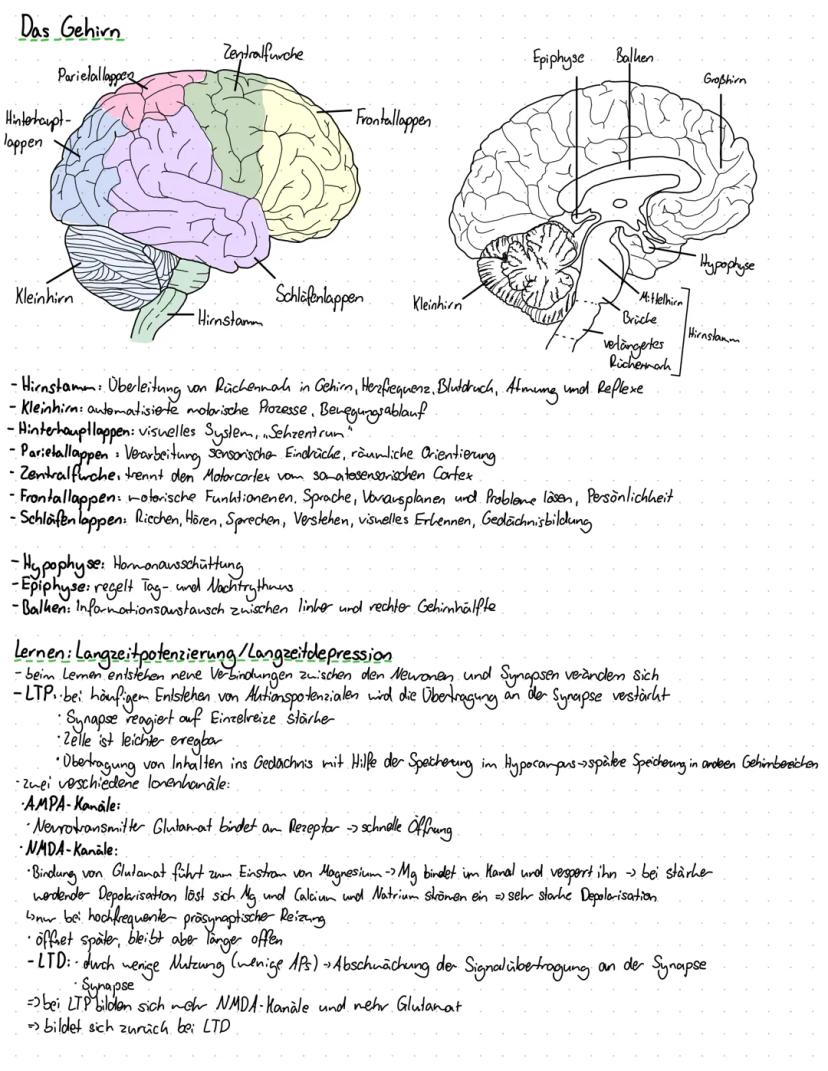 Das Gehirn
Zentralfurche
Parietallappen
Hinterhaupt-
lappen
Frontallappen
Kleinhirn
Hirnstamm
Schläfenlappen
Epiphyse
Balken
Großhirn
Hypophyse
Kleinhirn
Mittelhirn
Brücke
verlängertes
Rückenmark
Hirnstamm
- Hirnstamm: Überleitung von Rückenmark in Gehirn, Herzfrequenz, Blutdruck, Atmung und Reflexe
- Kleinhirn: automatisierte motorische Prozesse, Bewegungsablauf
- Hinterhauptlappen: visuelles System, „Sehzentrum"
- Parietallappen: Verarbeitung sensorische Eindrücke, räumliche Orientierung
- Zentralfurche: trennt den Motorcortex vom somatosensorischen Cortex
- Frontallappen: motorische Funktionenen, Sprache, Vorausplanen und Probleme lösen, Persönlichkeit
- Schläfenlappen: Riechen, Hören, Sprechen, Verstehen, visuelles Erkennen, Gedächnisbildung
- Hypophyse: Hormonausschüttung
- Epiphyse: regelt Tag- und Nachtrythmus
- Balken: Informationsaustausch zwischen linker und rechter Gehirnhälfte
Lernen: Langzeitpotenzierung/Langzeitdepression
- beim Lernen entstehen neue Verbindungen zwischen den Neuronen und Synapsen verändern sich
- LTP: · bei häufigem Entstehen von Aktionspotenzialen wird die Übertragung an der Synapse verstärkt
· Synapse reagiert auf Einzelreize stärker
· Zelle ist leichter erregbar
· Übertragung von Inhalten ins Gedächnis mit Hilfe der Speicherung im Hypocampus → spätere Speicherung in anderen Gehirnbereichen
· zwei verschiedene Ionenkanäle:
· AMPA-Kanäle:
· Neurotransmitter Glutamat bindet am Rezeptor → schnelle Öffnung
· NMDA-Kanäle:
· Bindung von Glutamat führt zum Einstrom von Magnesium → Mg bindet im Kanal und versperrt ihn → bei stärker
werdender Depolarisation löst sich Mg und Calcium und Natrium strömen ein ⇒ sehr starke Depolarisation
↳ nur bei hochfrequenter präsynaptischer Reizung
· öffnet später, bleibt aber länger offen
- LTD: · durch wenige Nutzung (wenige APs) → Abschwächung der Signalübertragung an der Synapse
· Synapse
⇒ bei LTP bilden sich mehr NMDA-Kanäle und mehr Glutamat
⇒ bildet sich zurück bei LTD